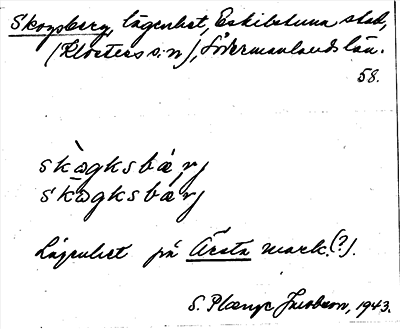 Skogsberg, lägenhet, Eskilstuna stad,
(Klosters s:n), Södermanlands län.
58.
skògksbǽrj
skògksbærj
Lägenhet på Ärsta mark.(?).
S. Plænge Jacobson, 1943.